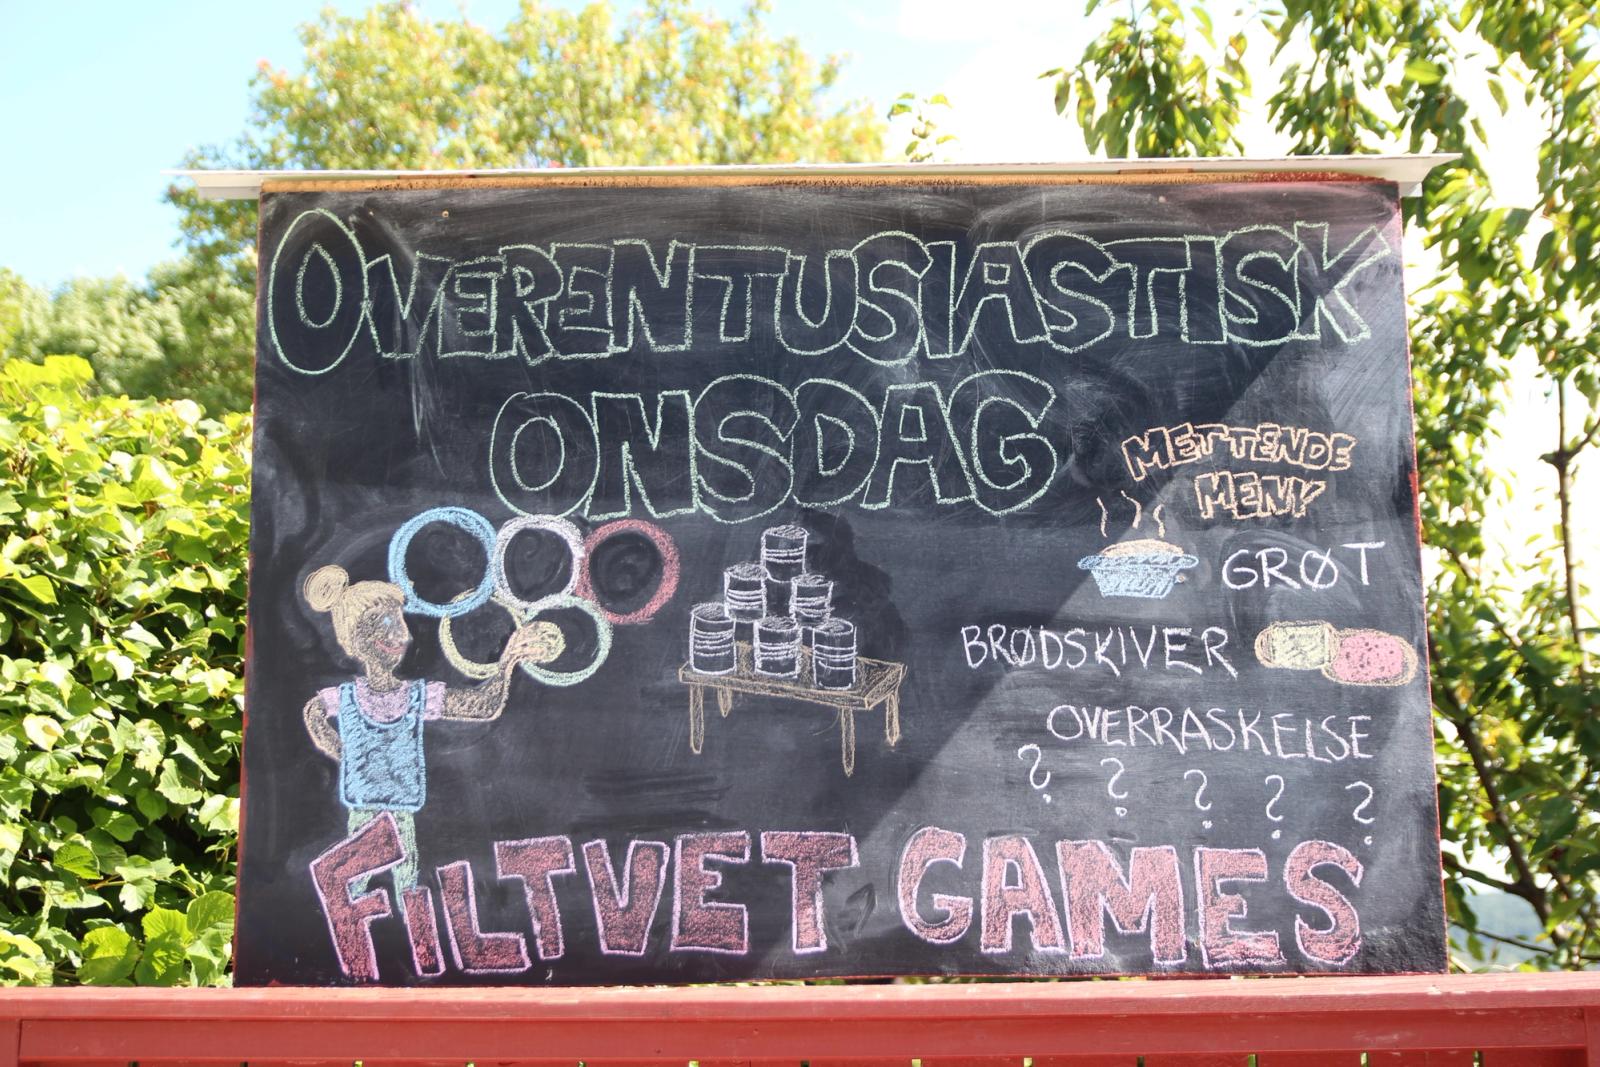 OVERENTUSIASTISK
ONSDAG
METTENDE
MENY
GRØT
BRØDSKIVER
OVERRASKELSE
? ? ? ? ?
FILTVET GAMES